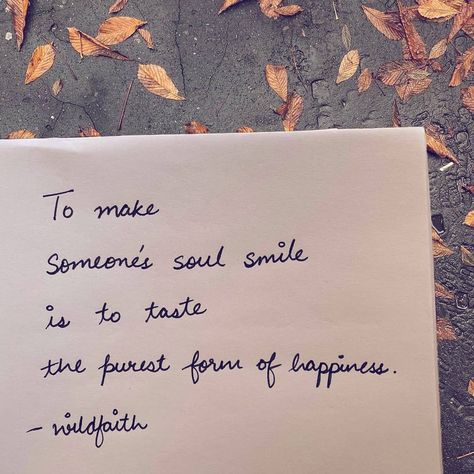 To make
someone's soul smile
is to taste
the purest form of happiness.
- wildfaith